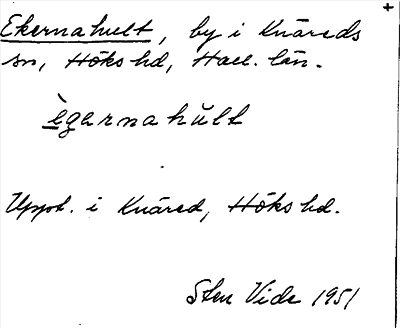 Ekernahult, by i Knäreds
sn, Höks hd, Hall. län.
ègernahŭlt
Uppt. i Knäred, Höks hd.
Sten Vide 1951